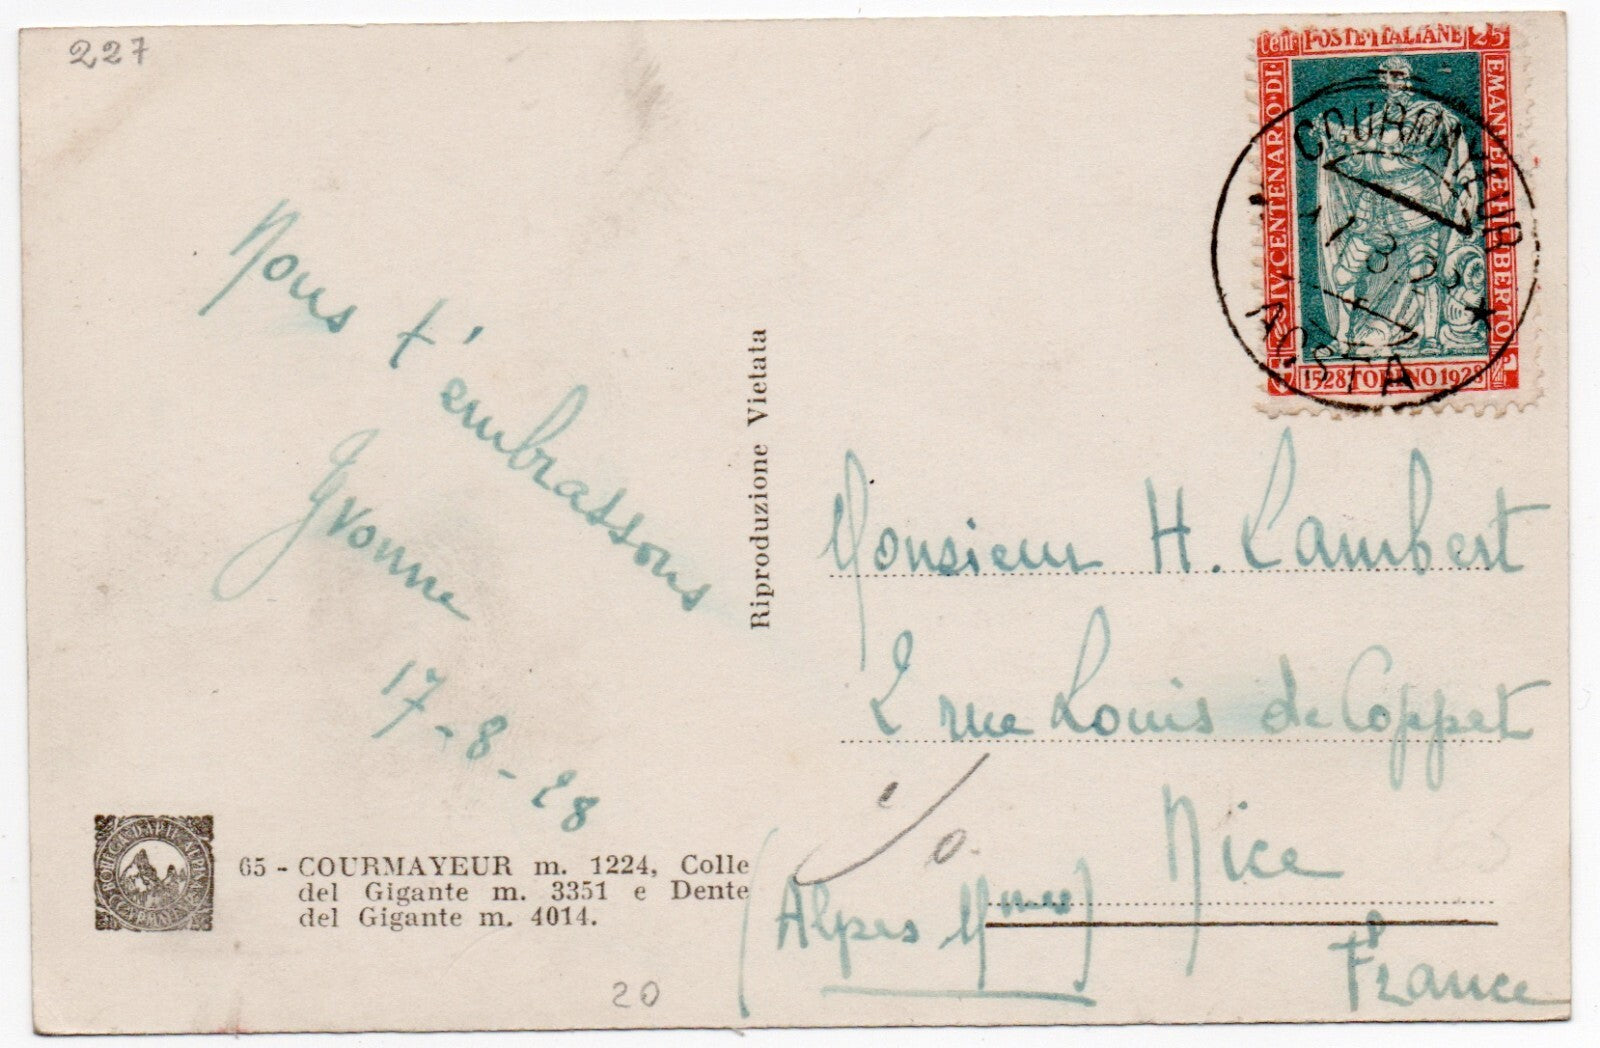 227
Cent. POSTE·ITALIANE 25
IV·CENTENARIO·DI·
EMANVELE FILIBERTO
1528 TORINO 1928
COURMAYEUR
17 8 28
AOSTA
Nous t'embrassons
Yvonne
17-8-28
Riproduzione Vietata
Monsieur H. Lambert
2 rue Louis de Coppet
Nice
(Alpes Mmes)
France
65 - COURMAYEUR m. 1224, Colle
del Gigante m. 3351 e Dente
del Gigante m. 4014.
20